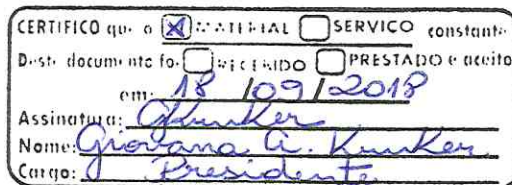 CERTIFICO que o MATERIAL SERVICO constante
Deste documento foi RECEBIDO PRESTADO e aceito
em: 18 / 09 / 2018
Assinatura: GKunker
Nome: Giovana A. Kunker
Cargo: Presidente